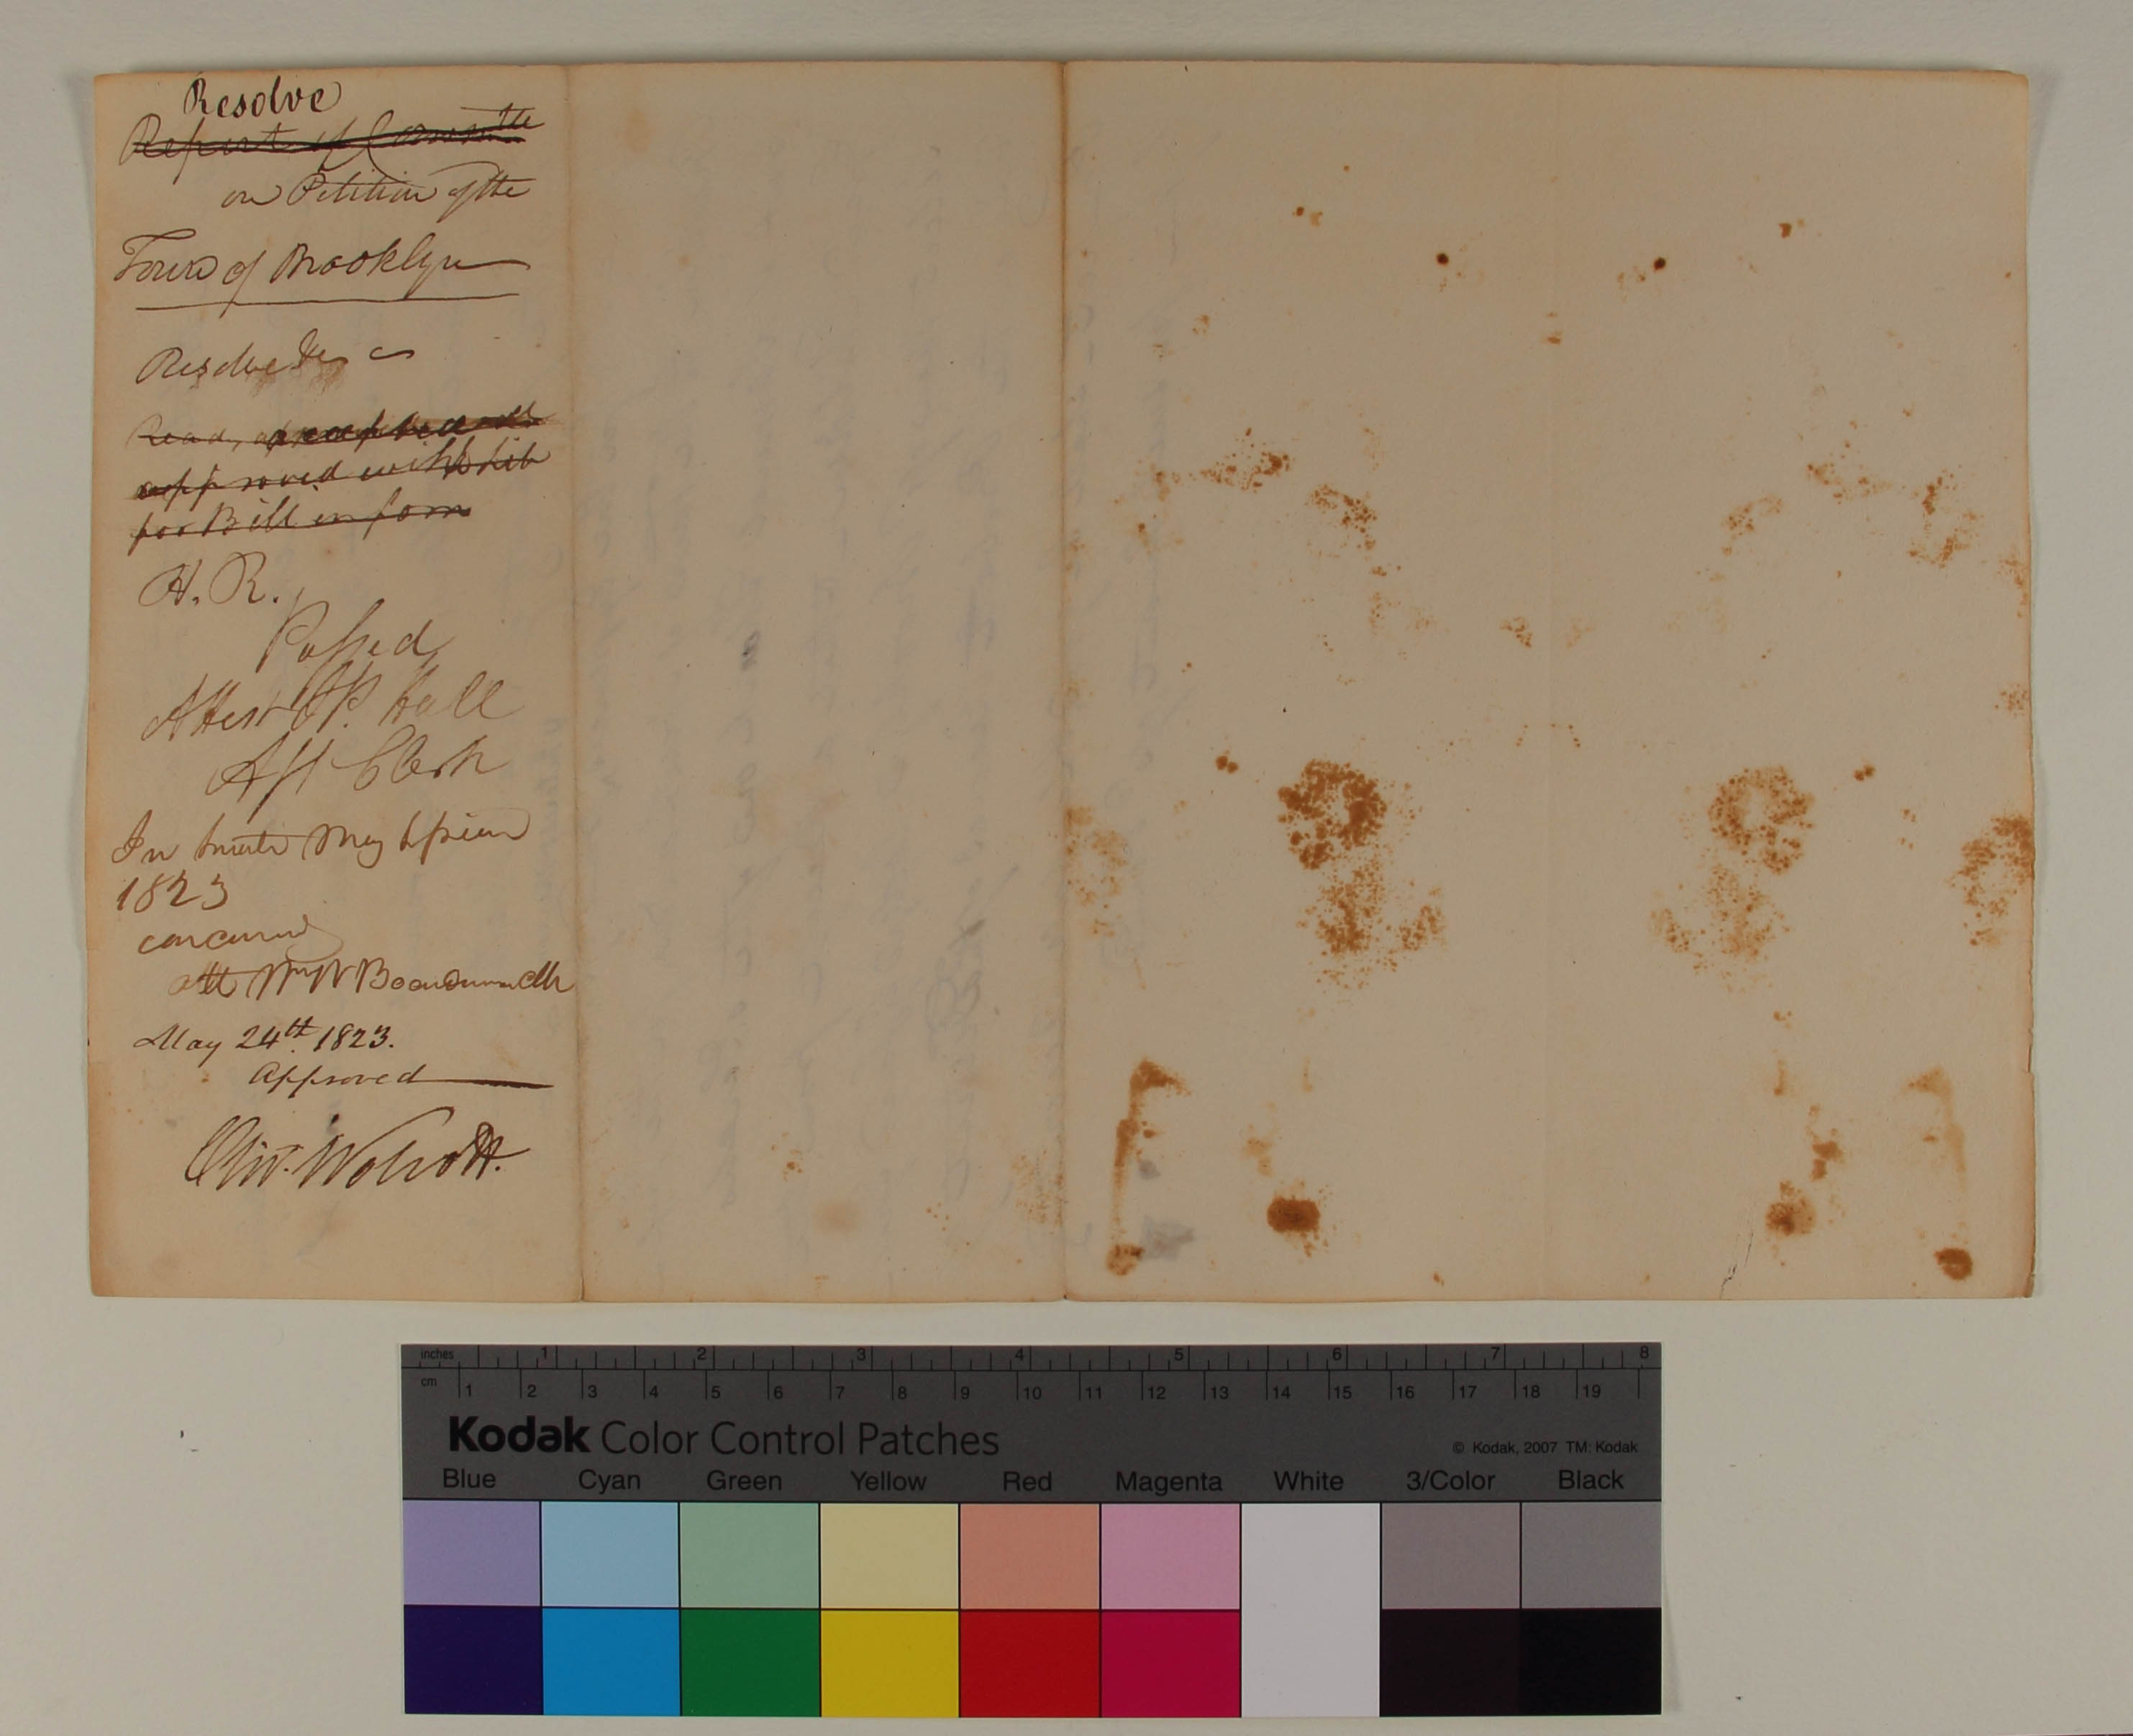 Resolve
Report of Committee
on Petition of the
Town of Brooklyn
Resolve
Read, accepted and
approved with lib
for Bill in form
H. R.
Passed
Attest P. Hall
Asst Clerk
In Senate May Session
1823
concurred
att Wm W Boardman Clk
May 24th. 1823.
Approved
Oliv. Wolcott.
inches 1 2 3 4 5 6 7 8
cm 1 2 3 4 5 6 7 8 9 10 11 12 13 14 15 16 17 18 19
Kodak Color Control Patches
© Kodak, 2007 TM: Kodak
Blue Cyan Green Yellow Red Magenta White 3/Color Black